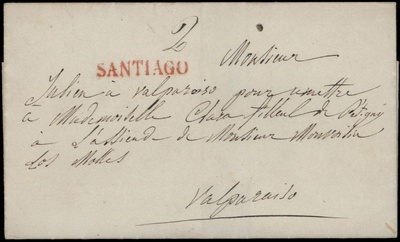 2
SANTIAGO
Monsieur
Julien à valparaiso pour remettre
a Mademoiselle Clara filleul de Pétigny
à L'assiende de Monsieur Monvoisin
Los Molles
Valparaiso